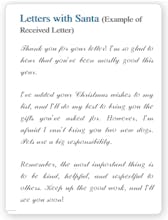 Letters with Santa (Example of
Received Letter)
Thank you for your letter! I'm so glad to
hear that you've been mostly good this
year.
I've added your Christmas wishes to my
list, and I'll do my best to bring you the
gifts you've asked for. However, I'm
afraid I can't bring you two new dogs.
Pets are a big responsibility.
Remember, the most important thing is
to be kind, helpful, and respectful to
others. Keep up the good work, and I'll
see you soon!